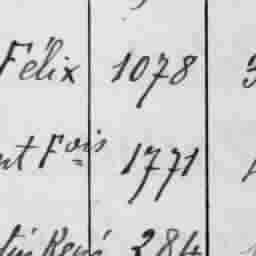 Félix 1078
nt Fois 1771
René 284